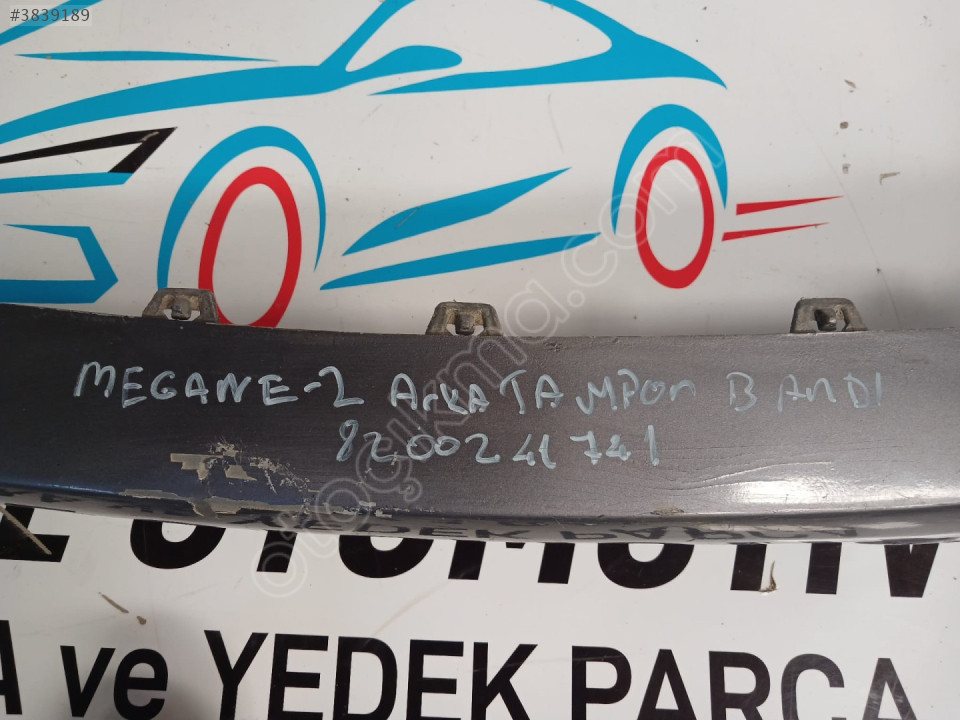 #3839189
MEGANE-2 ArKA TAMPON BANDI
8200241741
otoçıkma.com
E OTOMOTİV
A ve YEDEK PARÇA